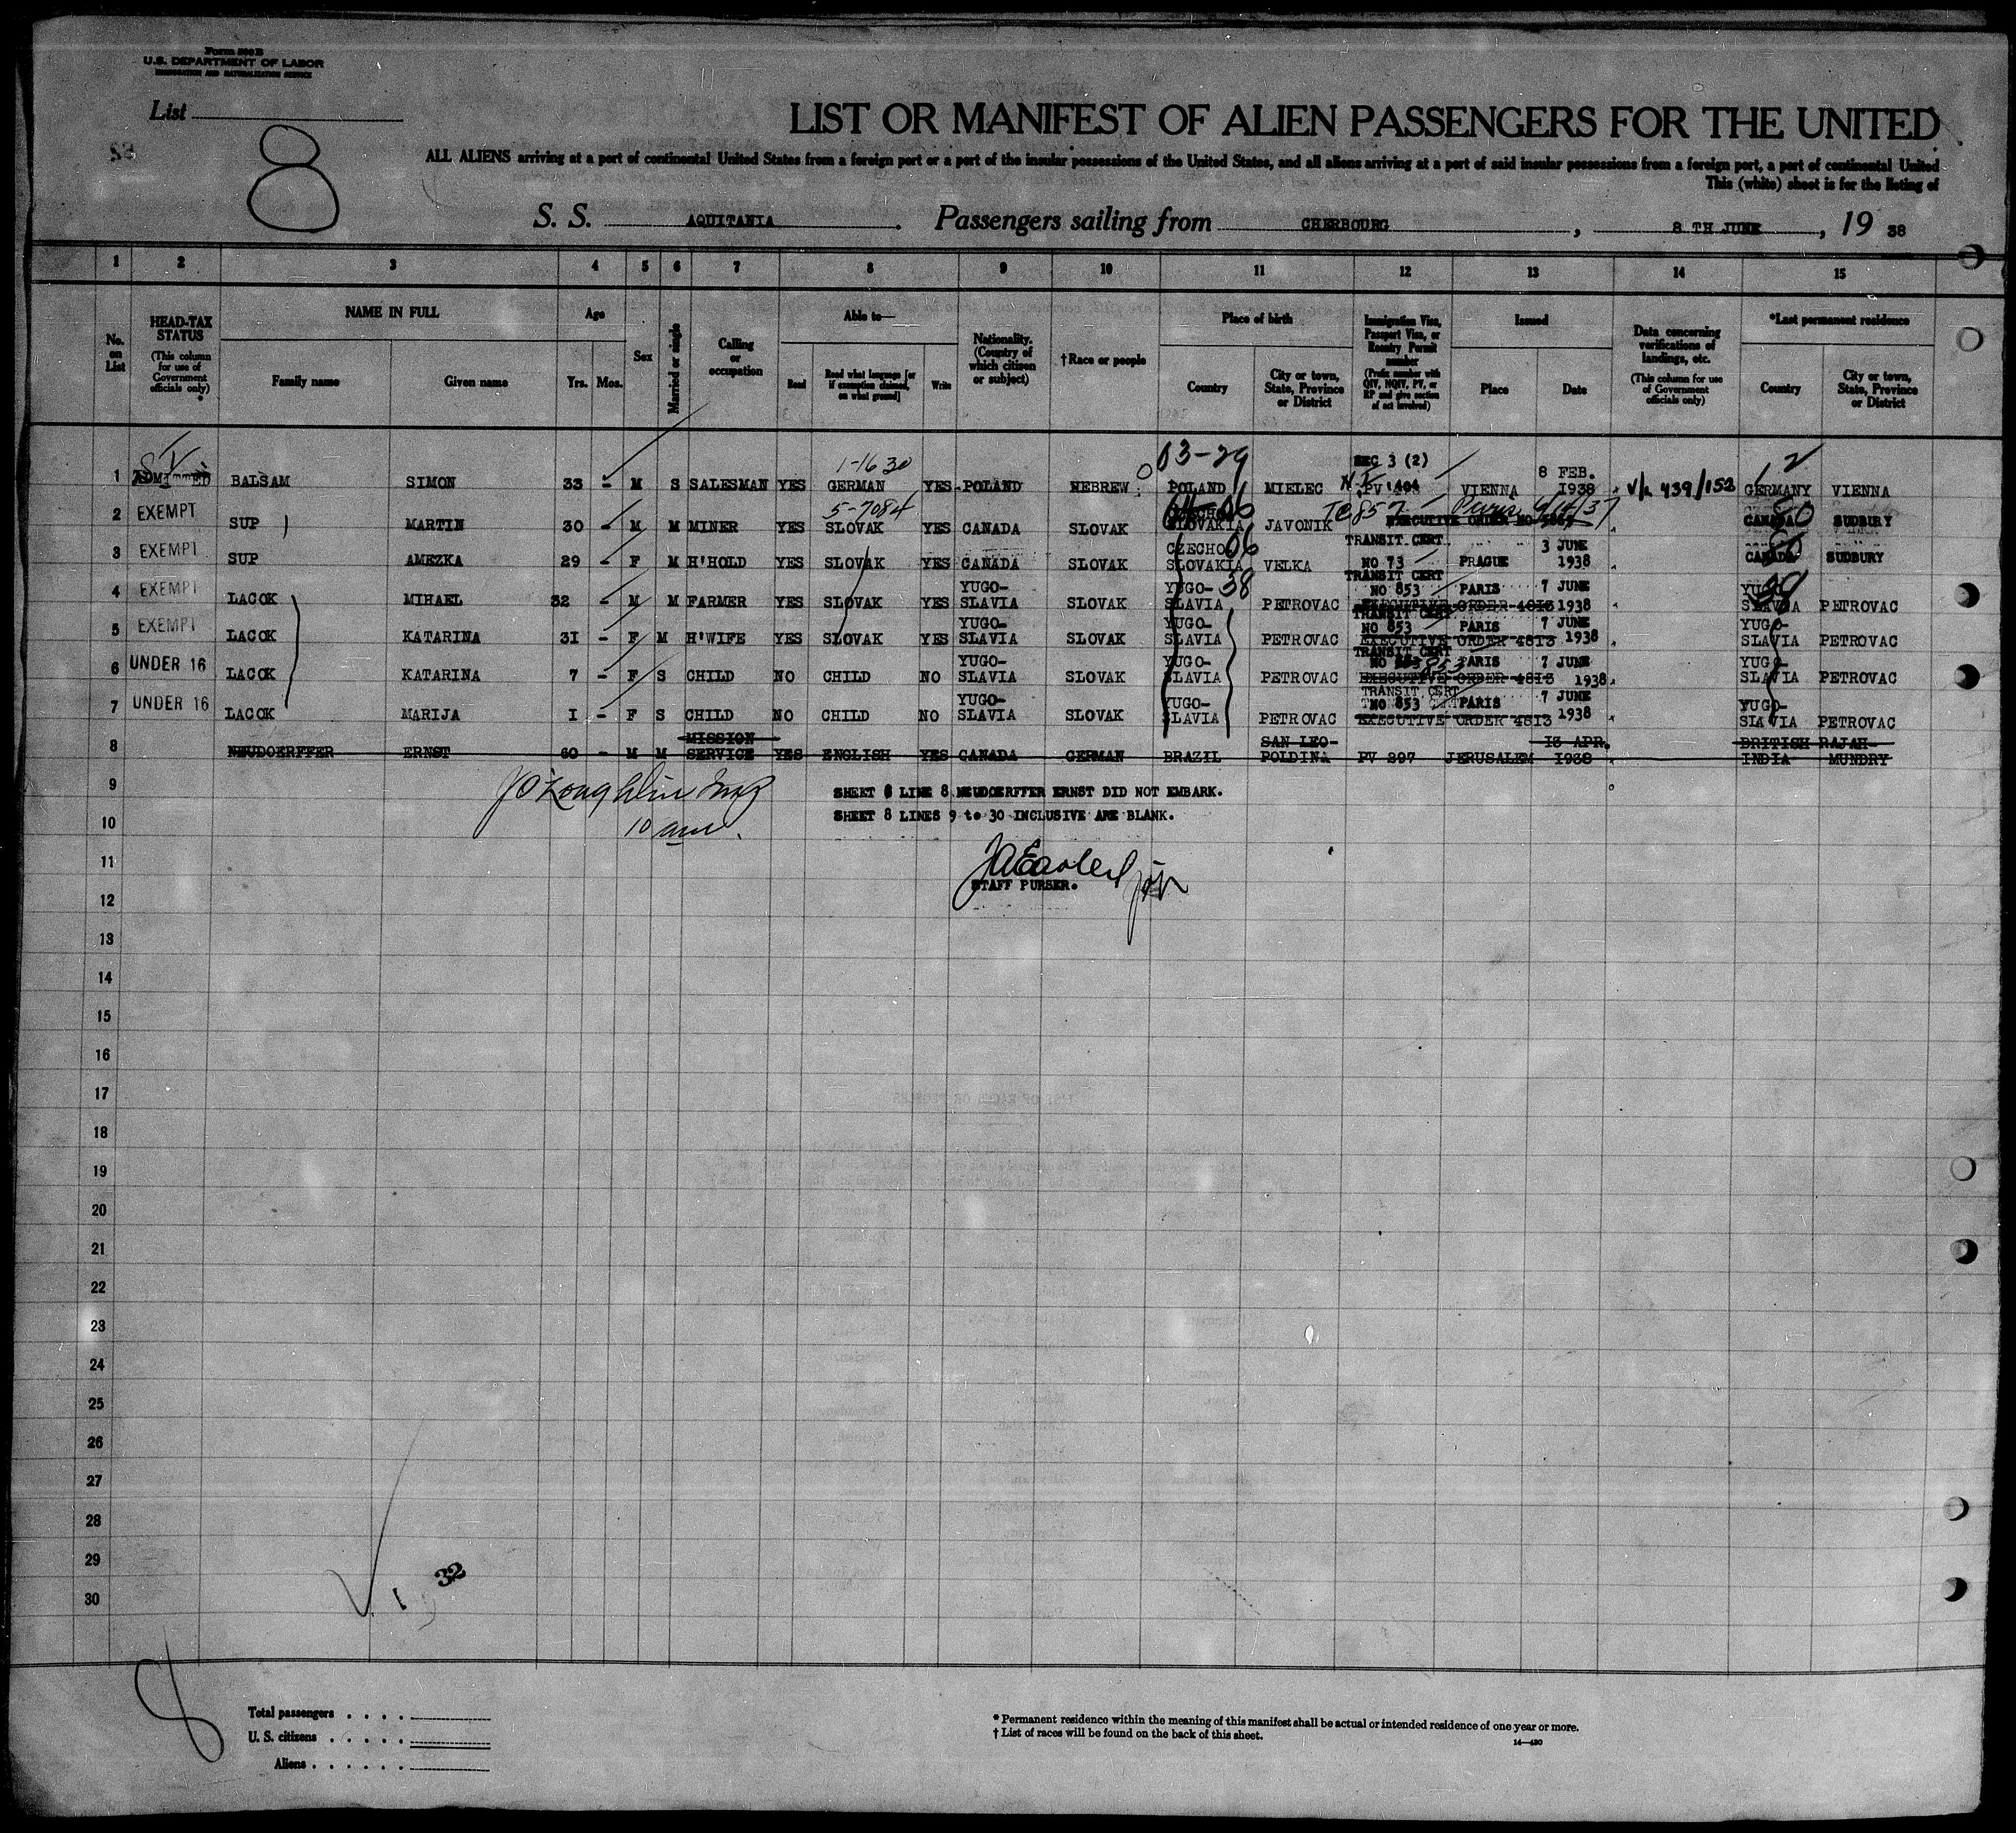 Form 500 B
U.S. DEPARTMENT OF LABOR
IMMIGRATION AND NATURALIZATION SERVICE
List
8
LIST OR MANIFEST OF ALIEN PASSENGERS FOR THE UNITED
ALL ALIENS arriving at a port of continental United States from a foreign port or a port of the insular possessions of the United States, and all aliens arriving at a port of said insular possessions from a foreign port, a port of continental United
This (white) sheet is for the listing of
S. S. AQUITANIA. Passengers sailing from CHERBOURG, 8 TH JUNE, 19 38
1 2 3 4 5 6 7 8 9 10 11 12 13 14 15
No. on List
HEAD-TAX STATUS (This column for use of Government officials only)
NAME IN FULL Family name Given name
Age Yrs. Mos.
Sex
Married or single
Calling or occupation
Able to— Read Read what language [or if exemption claimed, on what ground] Write
Nationality. (Country of which citizen or subject)
†Race or people
Place of birth Country City or town, State, Province or District
Immigration Visa, Passport Visa, or Reentry Permit number (Prefix number with QIV, NQIV, PV, or RP and give section of act involved)
Issued Place Date
Data concerning verifications of landings, etc. (This column for use of Government officials only)
*Last permanent residence Country City or town, State, Province or District
1-16 30 03-29 SEC 3 (2) 8 FEB.
1 ADMITTED BALSAM SIMON 33 - M S SALESMAN YES GERMAN YES POLAND HEBREW POLAND MIELEC PV 404 VIENNA 1938 V/L 439/152 GERMANY VIENNA
5-7084 06 TC 857 Paris
2 EXEMPT SUP MARTIN 30 - M M MINER YES SLOVAK YES CANADA SLOVAK SLOVAKIA JAVONIK EXECUTIVE ORDER NO CANADA SUDBURY
CZECHO 06 TRANSIT CERT. 3 JUNE
3 EXEMPT SUP AMEZKA 29 - F M H'HOLD YES SLOVAK YES CANADA SLOVAK SLOVAKIA VELKA NO 73 PRAGUE 1938 CANADA SUDBURY
YUGO- YUGO- 38 TRANSIT CERT NO 853 PARIS 7 JUNE YUGO-
4 EXEMPT LACOK MIHAEL 32 - M M FARMER YES SLOVAK YES SLAVIA SLOVAK SLAVIA PETROVAC EXECUTIVE ORDER 4813 1938 SLAVIA PETROVAC
YUGO- YUGO- TRANSIT CERT NO 853 PARIS 7 JUNE YUGO-
5 EXEMPT LACOK KATARINA 31 - F M H'WIFE YES SLOVAK YES SLAVIA SLOVAK SLAVIA PETROVAC EXECUTIVE ORDER 4813 1938 SLAVIA PETROVAC
YUGO- YUGO- TRANSIT CERT NO 853 PARIS 7 JUNE YUGO-
6 UNDER 16 LACOK KATARINA 7 - F S CHILD NO CHILD NO SLAVIA SLOVAK SLAVIA PETROVAC EXECUTIVE ORDER 4813 1938 SLAVIA PETROVAC
YUGO- YUGO- TRANSIT CERT NO 853 PARIS 7 JUNE YUGO-
7 UNDER 16 LACOK MARIJA 1 - F S CHILD NO CHILD NO SLAVIA SLOVAK SLAVIA PETROVAC EXECUTIVE ORDER 4813 1938 SLAVIA PETROVAC
MISSION SAN LEO- 13 APR. BRITISH RAJAH-
8 NEUDOERFFER ERNST 60 - M M SERVICE YES ENGLISH YES CANADA GERMAN BRAZIL POLDINA PV 297 JERUSALEM 1938 INDIA MUNDRY
9 SHEET 8 LINE 8 NEUDOERFFER ERNST DID NOT EMBARK.
SHEET 8 LINES 9 to 30 INCLUSIVE ARE BLANK.
10 10 am.
11
STAFF PURSER.
12
13
14
15
16
17
18
19
20
21
22
23
24
25
26
27
28
29
30
32
8
Total passengers . . . .
U. S. citizens . . . . .
Aliens . . . . . .
* Permanent residence within the meaning of this manifest shall be actual or intended residence of one year or more.
† List of races will be found on the back of this sheet.
14—430